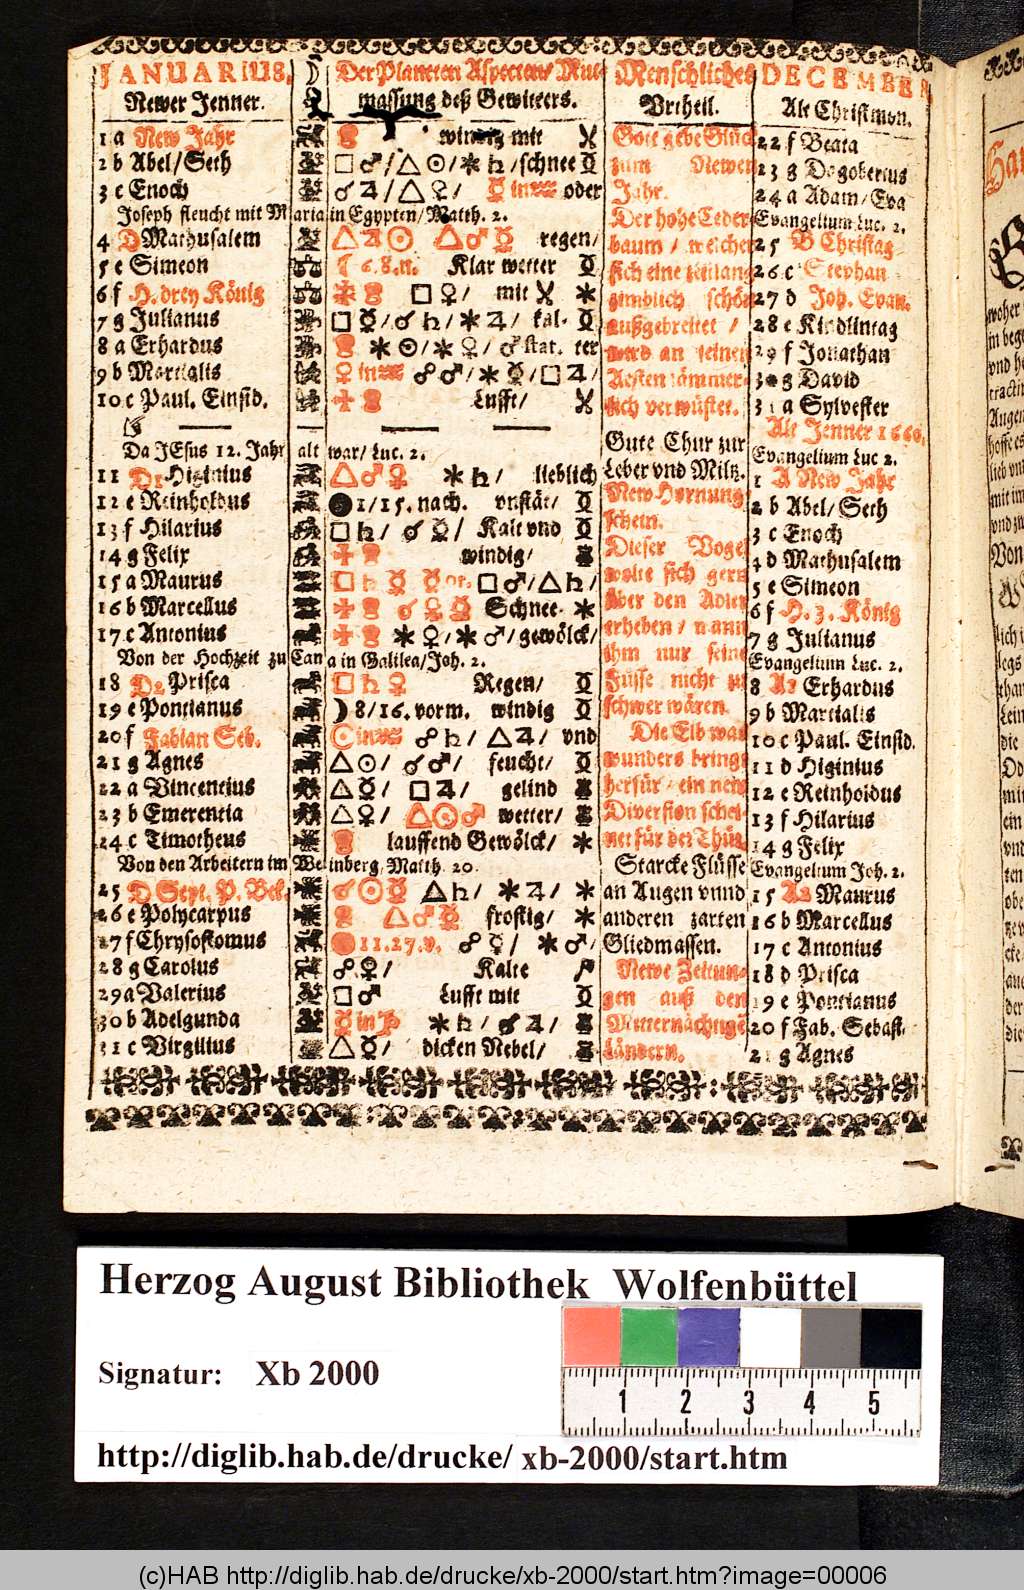 JANUARIUS.
Newer Jenner.
1 a New Jahr
2 b Abel/Seth
3 c Enoch
Joseph fleucht mit Maria in Egypten/Matth. 2.
4 D Mathusalem
5 e Simeon
6 f H. drey König
7 g Julianus
8 a Erhardus
9 b Martialis
10 c Paul. Einsid.
Da JEsus 12. Jahr alt war/Luc. 2.
11 D1 Higinius
12 e Reinholdus
13 f Hilarius
14 g Felix
15 a Maurus
16 b Marcellus
17 c Antonius
Von der Hochzeit zu Cana in Galilea/Joh. 2.
18 D2 Prisca
19 e Pontianus
20 f Fabian Seb.
21 g Agnes
22 a Vincentius
23 b Emerentia
24 c Timotheus
Von den Arbeitern im Weinberg/Matth. 20.
25 D Sept. P. Bek.
26 e Polycarpus
27 f Chrysostomus
28 g Carolus
29 a Valerius
30 b Adelgunda
31 c Virgilius
☽
Der Planeten Aspecten/Mut-
massung deß Gewitters.
windig mit
□ ♂/△ ☉/✶ ♄/schnee
☌ ♃/△ ♀/ ☿ in ♒ oder
△ ♃ ☉ △ ♂ ☿ regen/
☾ 6.8.n. Klar wetter
□ ♀/ mit ✶
□ ☿/☌ ♄/✶ ♃/ kal-
✶ ☉/✶ ♀/ ♂ stat. ter
♀ in ♒ ☍ ♂/✶ ☿/□ ♃/
Lufft/
△ ♂ ♀ ✶ ♄/ lieblich
1/15. nach. vnstät/
□ ♄/ ☌ ☿/ Kalt vnd
windig/
□ ♄ ☿ ☿ or. □ ♂/△ ♄/
☌ ♀ ☿ Schnee ✶
✶ ♀/✶ ♂/gewölck/
□ ♄ ♀ Regen/
☽ 8/16. vorm. windig
☉ in ♒ ☍ ♄/ △ ♃/ vnd
△ ☉/ ☌ ♂/ feucht/
△ ☿/ □ ♃/ gelind
△ ♀/ △ ☉ ♂ wetter/
lauffend Gewölck/ ✶
☌ ☉ ☿ △ ♄/ ✶ ♃/ ✶
△ ♂ ☿ frostig/ ✶
11.27.v. ☍ ☿/ ✶ ♂/
☍ ♀/ Kalte
□ ♂ Lufft mit
☿ in ♑ ✶ ♄/ ☌ ♃/
△ ☿/ dicken Nebel/
Menschliches
Vrtheil.
Gott gebe Glück
zum Newen
Jahr.
Der hohe Ceder-
baum/welcher
sich eine zeitlang
zimblich schön
außgebreitet/
wird an seinen
Aesten jämmer-
lich verwüstet.
Gute Chur zur
Leber vnd Miltz.
New Hornung
schein.
Dieser Vogel
wolte sich gern
über den Adler
erheben/wann
ihm nur seine
Füsse nicht zu
schwer wären.
Die Elb was
wunders bringt
herfür/ein new
Diversion schei-
net für der Thür.
Starcke Flüsse
an Augen vnnd
anderen zarten
Gliedmassen.
Newe Zeitun-
gen auß den
Mitternächtigē
Ländern.
DECEMBER,
Alt Christmon.
22 f Beata
23 g Dagobertus
24 a Adam/Eva
Evangelium Luc. 2.
25 B Christag
26 c Stephan
27 d Joh. Evan.
28 e Kindlintag
29 f Jonathan
30 g David
31 a Sylvester
Alt Jenner 1660.
Evangelium Luc 2.
1 A New Jahr
2 b Abel/Seth
3 c Enoch
4 d Mathusalem
5 e Simeon
6 f H. 3. König
7 g Julianus
Evangelium Luc. 2.
8 A1 Erhardus
9 b Martialis
10 c Paul. Einsid.
11 d Higinius
12 e Reinholdus
13 f Hilarius
14 g Felix
Evangelium Joh. 2.
15 A2 Maurus
16 b Marcellus
17 c Antonius
18 d Prisca
19 e Pontianus
20 f Fab. Sebast.
21 g Agnes
Herzog August Bibliothek Wolfenbüttel
Signatur: Xb 2000
1 2 3 4 5
http://diglib.hab.de/drucke/ xb-2000/start.htm
(c)HAB http://diglib.hab.de/drucke/xb-2000/start.htm?image=00006